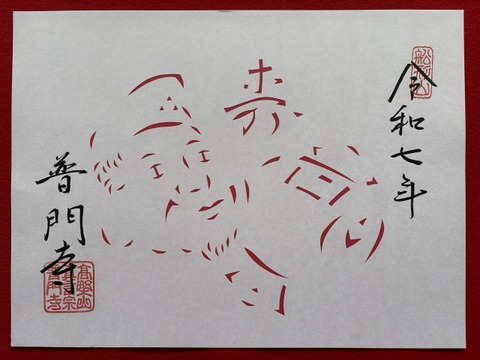 船形山
令和七年
普門寺
高野山
真言宗
普門寺